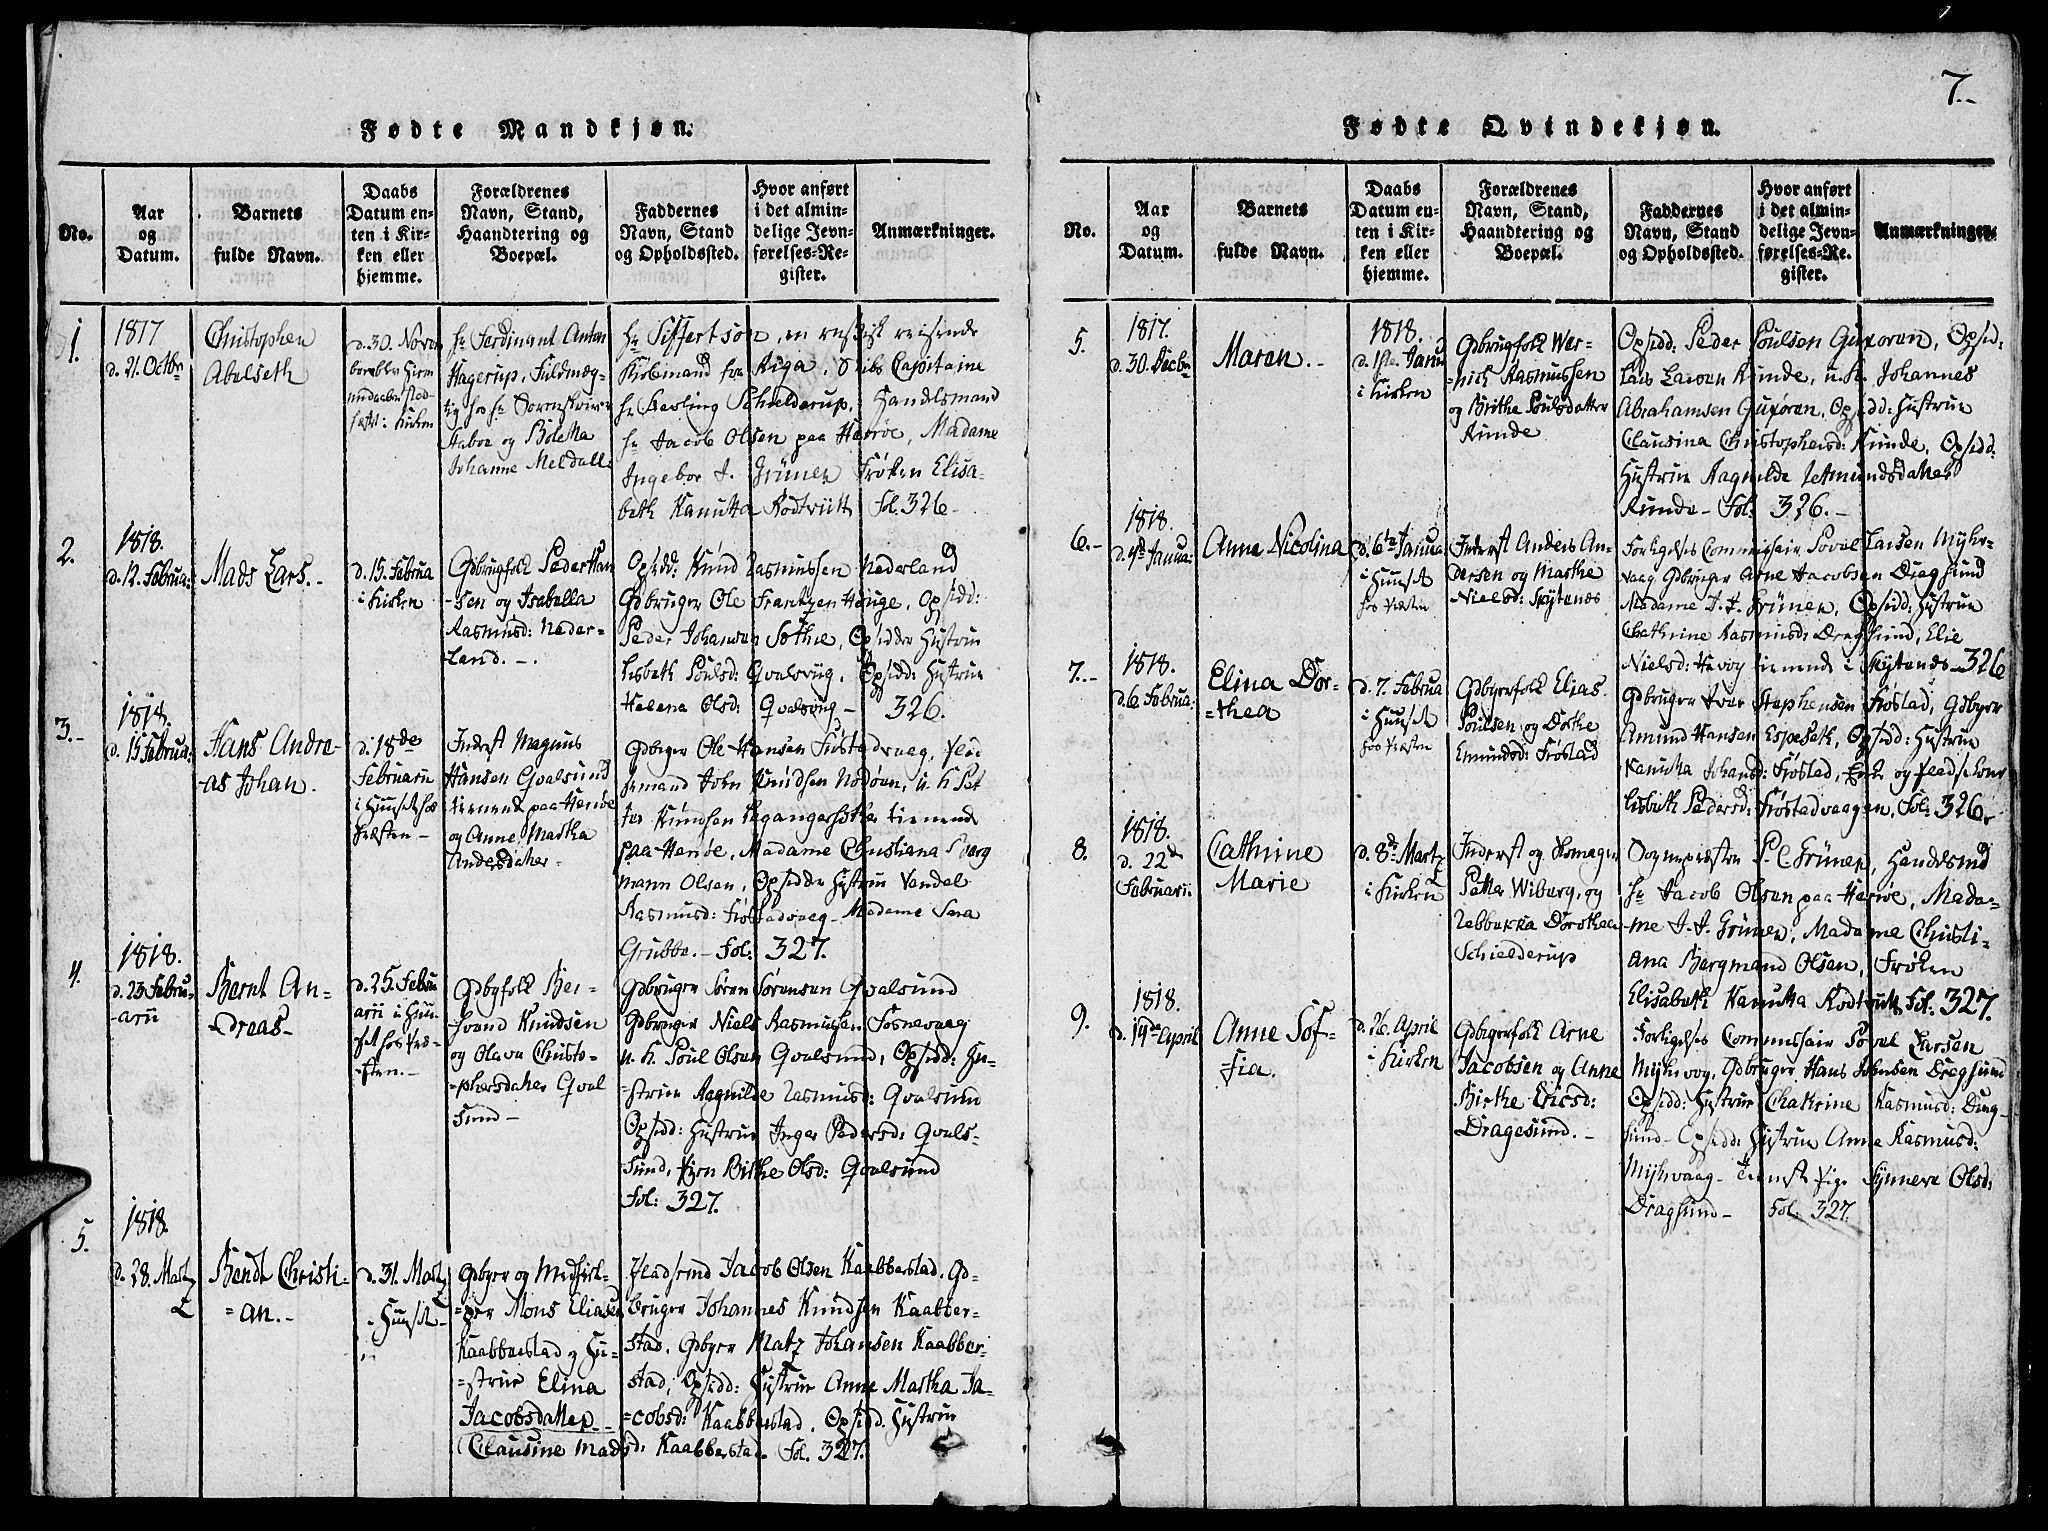 7.
Fødte Mandkjøn.
No.
Aar
og
Datum.
Barnets
fulde Navn.
Daabs
Datum en-
ten i Kir-
ken eller
hjemme.
Forældrenes
Navn, Stand,
Haandtering og
Boepæl.
Faddernes
Navn, Stand
og Opholdssted.
Hvor anført
i det almin-
delige Jevn-
førelses-Re-
gister.
Anmærkninger.
1.
1817
d. 21. Octbr
Christopher
Abelseth
d. 30. Novem
i Kirken
hr Ferdinant Anton
Hagerup, Fuldmæg-
tig hos hr Sorenskriver
og Boletta
Johanne Meldall.
hr Siffertson, en reisende
Kiobmand fra Riga, Skibs Capitaine
hr Schielderup, Handelsmand
hr Jacob Olsen paa Herøe, Madame
Ingebor J. Grüner Frøken Elisa-
beth Kanutta Rodtvitt Fol. 326
2.
1818.
d. 12. Februa:
Mads Lars.
d. 15. Februa
i Kirken
Gdbrugfolk Peder Han
-sen og Isabella
Rasmusd: Neder-
land.
Opsidd: Knud Rasmussen Nederland
Gdbruger Ole Frantzen Houge, Opsidd:
Peder Johansen Sothie, Opsidder Hustrue
Lisbeth Poulsd: Qvalsvig, Opsidd: Hustrue
Helena Olsd: Qvalsvig 326.
3.
1818.
d. 15 Februa:
Hans Andre-
as Johan.
d. 18de
Februarii
i Huuset hos
Præsten
Inderst Magnus
Hansen Qvalsund
tienende paa Herøe
og Anne Martha
Andersdatter
Gdbruger Ole Hansen Frøstadvaag, Plads
mand John Knudsen Nodøen, u. k. Pet
ter Knudsen tienende
paa Herøe, Madame Christiana Berg
mann Olsen, Opsidder Hustrue Vendel
Rasmusd: Frøstadvaag Madame Sara
Grubbe. Fol: 327.
4.
1818.
d. 23 Febru-
arii
Bernt An-
dreas
d. 25. Febru
arii i Huu-
set hos Præ-
sten.
Gdbrfolk
Knudsen
og Olava Christo-
phersdatter Qval
sund
Gdbruger Søren Sørensen Qvalsund
Gdbruger Niels Rasmussen Tosnevaag
u. k. Poul Olsen Qvalsund, Opsidd: Hu-
strue Ragnilde Rasmusd: Qvalsund
Opsidd: Hustrue Inger Pedersd: Qvals-
sund, Pigen Birthe Olsd: Qvalsund
Fol: 327.
5.
1818.
d. 28. Martz
Bendt Christi-
an.
d. 31. Martz
i Huuset
Gdbyer og Medhiel-
per Mons Eliasen
Kaabberstad og Hu-
strue Elina
Jacobsdatter
Pladsmd Jacob Olsen Kaabberstad, Gd-
bruger Johannes Knudsen Kaabber-
stad, Gdbyer Matz Johansen Kaabber-
stad, Opsidd: Hustrue Anne Martha Ja-
cobsd: Kaabberstad, Opsidd. Hustrue
Clausine Madsd: Kaabberstad. Fol. 327.
Fødte Qvindekjøn.
No.
Aar
og
Datum.
Barnets
fulde Navn.
Daabs
Datum en-
ten i Kir-
ken eller
hjemme.
Forældrenes
Navn, Stand,
Haandtering og
Boepæl.
Faddernes
Navn, Stand
og Opholdssted.
Hvor anført
i det almin-
delige Jevn-
førelses-Re-
gister.
Anmærkninger.
5.
1817.
d. 30. Decbr
Maren.
1818.
d. 1te Janu
i Kirken
Gdbrugfolk Wer-
nich Rasmussen
og Birthe Poulsdatter
Runde
Opsidd: Peder Poulsen Guxøren, Opsid:
Lars Larsen Runde, u. k. Johannes
Abrahamsen Guxøren, Opsidd: Hustrue
Clausina Christophersd: Runde, Opsidd:
Hustrue Ragnilde Zetmundsdatter
Runde Fol: 326.
6.
1818.
d. 4de Janua:
Anne Nicolina
d. 6te Janua
i Huuset
hos Præsten
Inderst Anders An-
dersen og Marthe
Nielsd: Myhrenæs
Forligelses Commissair Povel Larsen Myhr-
vaag Gdbruger Arne Jacobsen Dragsund
Madame J. J. Grüner, Opsidd: Hustrue
Cathrine Rasmusd: Dragsund, Elie
Nielsd: tienende i 326
7.
1818.
d. 6 Februa:
Elina Dor-
thea
d. 7. Februa
i Huuset
hos Præsten
Gdbyerfolk Elias
Poulsen og Dorthe
Emundsd: Frøstad
Gdbruger Iver Stephensen Frøstad, Gdbyer
Amund Hansen Espeseth, Opsidd: Hustrue
Kanutta Johansd: Frøstad, Enke og Pladskone
Lisbeth Pedersd: Frøstadvaagen, Fol: 326.
8.
1818.
d. 22de
Februarii
Cathrine
Marie
d. 8de Martz
i Kirken
Inderst og Skomager
Petter Wiberg, og
Rebbekka Dorothea
Schielderup
Sognepræsten P. C. Grüner, Handelsmd
hr Jacob Olsen paa Herøe, Mada-
me J. J. Grüner, Madame Christi-
ana Bergmand Olsen, Frøken
Elisabeth Kanutta Rodtvitt Fol. 327.
9.
1818.
d. 14de April
Anne Sof-
fia.
d. 26. April
i Kirken
Gdbyerfolk Arne
Jacobsen og Anne
Birthe Ericsd:
Dragesund.
Forligelses Commissair Povel Larsen
Myhrvog, Gdbruger Hans Johnsen Dragsund
Opsidd: Hustrue Chatrine Rasmusd: Drag-
sund Opsidd: Hustrue Anne Rasmusd:
Myhrvaag Tienst Pige Synneve Olsd:
Dragsund Fol. 327.